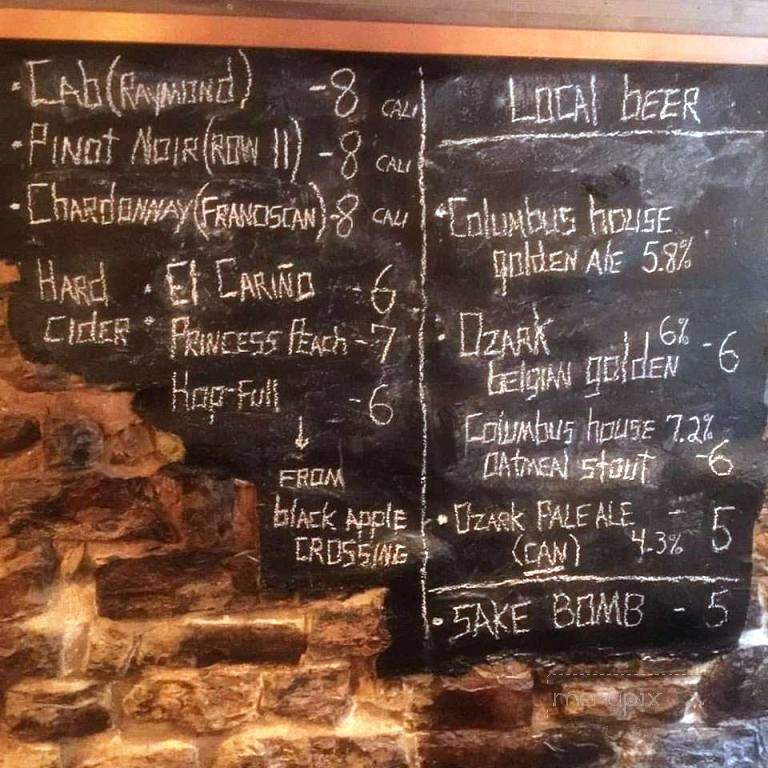 • Cab (Raymond) - 8 Cali
• Pinot Noir (Row 11) - 8 Cali
• Chardonnay (Franciscan) - 8 Cali
Hard Cider
• El Cariño - 6
• Princess Peach - 7
Hop-Full - 6
↓
From
black apple
crossing
Local beer
• Columbus house
golden Ale 5.8%
• Ozark 6%
belgian golden - 6
Columbus house 7.2%
Oatmen stout - 6
• Ozark Pale Ale - 5
(can) 4.3%
• Sake Bomb - 5